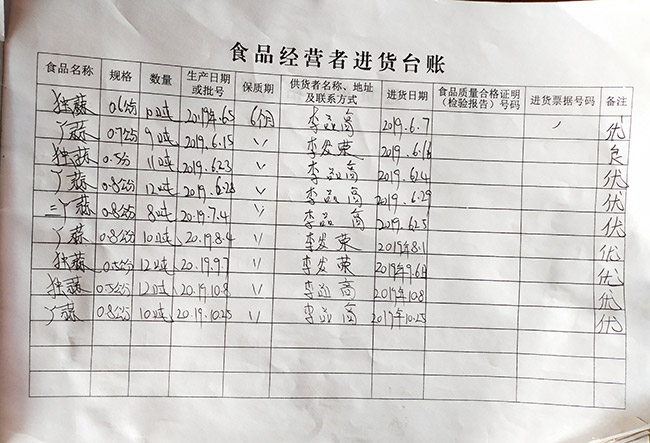 食品经营者进货台账
食品名称 规格 数量 生产日期或批号 保质期 供货者名称、地址及联系方式 进货日期 食品质量合格证明（检验报告）号码 进货票据号码 备注
独蒜 0.6公分 10吨 2019年6.5 6个月 李 高 2019.6.7 优
丫蒜 0.7公分 9吨 2019.6.15 〃 李发荣 2019.6.16 良
独蒜 0.5分 11吨 2019.6.23 〃 李 高 2019.6.24 优
丫蒜 0.8公分 12吨 2019.6.28 〃 李 高 2019.6.29 优
三丫蒜 0.8公分 8吨 2019.7.4 〃 李 高 2019.6.25 优
丫蒜 0.8公分 10吨 2019.8.4 〃 李发荣 2019年8.1 优
独蒜 0.5公分 12吨 2019.9.7 〃 李发荣 2019年9.6 优
独蒜 0.5公分 12吨 2019.10.8 〃 李 高 2019年10.8 优
丫蒜 0.8公分 10吨 2019.10.25 〃 李 高 2019年10.25 优